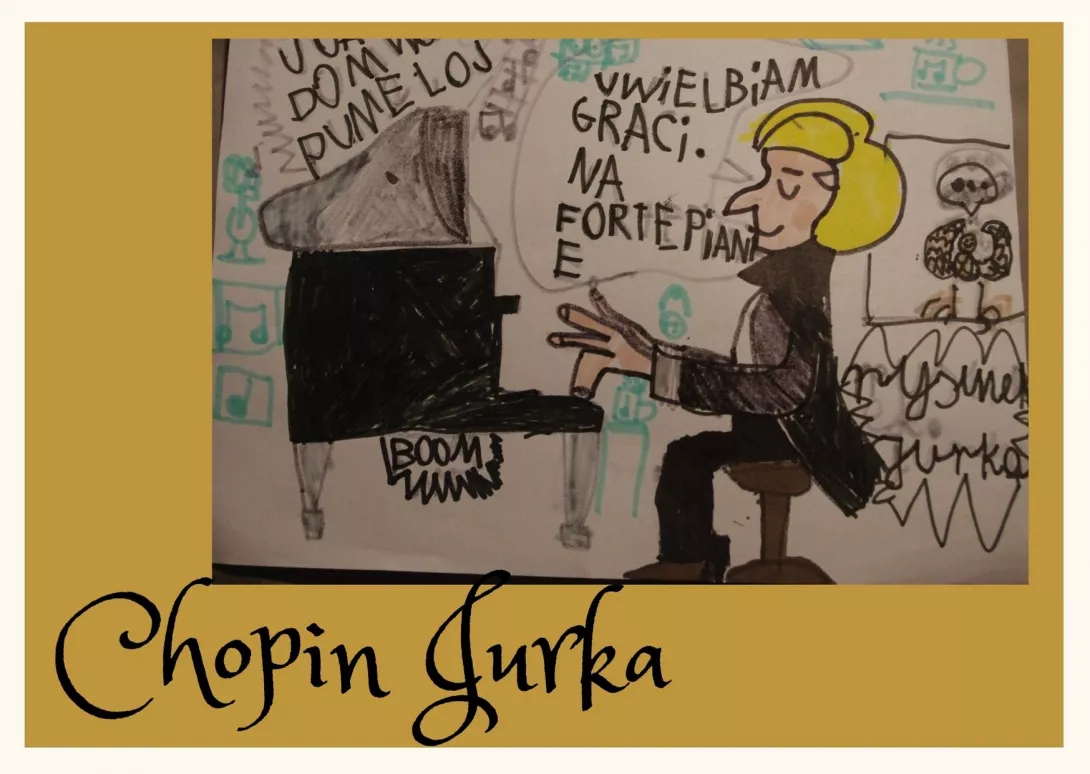 DOM
PUMELOJ
UWiELBiAM
GRACi.
NA
FORTEPiANi
E
BOOM
rysunek
Jurka
Chopin Jurka